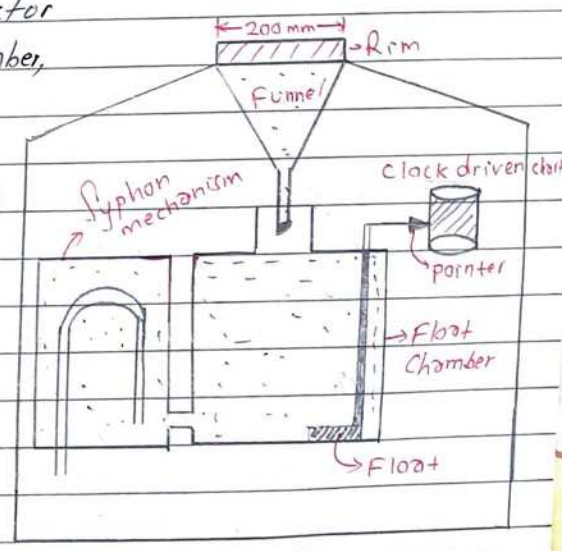 ctor
nber,
200 mm
Rim
Funnel
Syphon
mechanism
Clock driven chart
pointer
Float
Chamber
Float